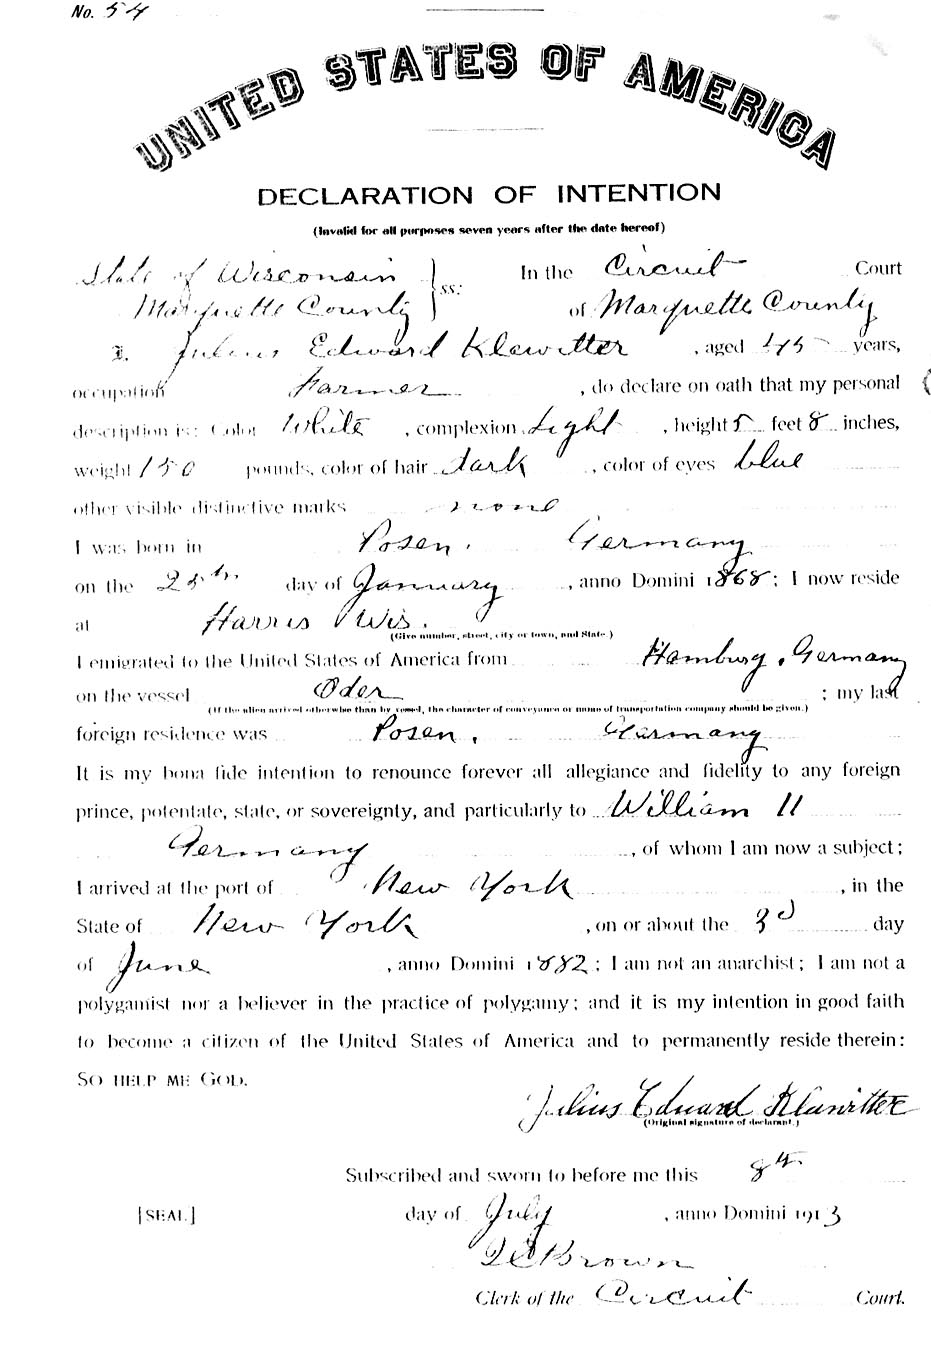 No. 54
UNITED STATES OF AMERICA
DECLARATION OF INTENTION
(Invalid for all purposes seven years after the date hereof)
State of Wisconsin } ss: In the Circuit Court
Marquette County of Marquette County
I, Julius Edward Klewitter, aged 45 years,
occupation Farmer, do declare on oath that my personal
description is: Color White, complexion Light, height 5 feet 8 inches,
weight 150 pounds, color of hair dark, color of eyes blue
other visible distinctive marks none
I was born in Posen. Germany
on the 25th day of January, anno Domini 1868; I now reside
at Harris Wis.
(Give number, street, city or town, and State.)
I emigrated to the United States of America from Hamburg, Germany
on the vessel Oder; my last
(If the alien arrived otherwise than by vessel, the character of conveyance or name of transportation company should be given.)
foreign residence was Posen, Germany
It is my bona fide intention to renounce forever all allegiance and fidelity to any foreign
prince, potentate, state, or sovereignty, and particularly to William II
Germany, of whom I am now a subject;
I arrived at the port of New York, in the
State of New York, on or about the 3d day
of June, anno Domini 1882; I am not an anarchist; I am not a
polygamist nor a believer in the practice of polygamy; and it is my intention in good faith
to become a citizen of the United States of America and to permanently reside therein:
SO HELP ME GOD.
Julius Eduard Klawitter
(Original signature of declarant.)
Subscribed and sworn to before me this 8th
[SEAL] day of July, anno Domini 1913
Brown
Clerk of the Circuit Court.